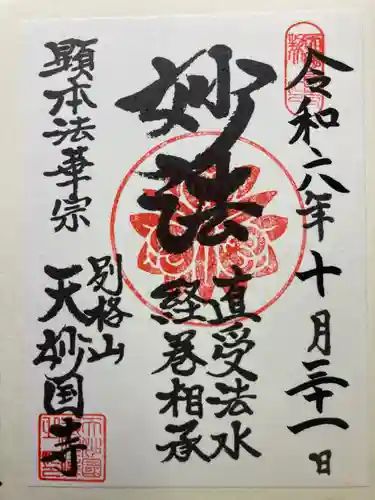 令和六年十月三十一日
妙法
直受法水
経巻相承
顕本法華宗
別格山
天妙国寺